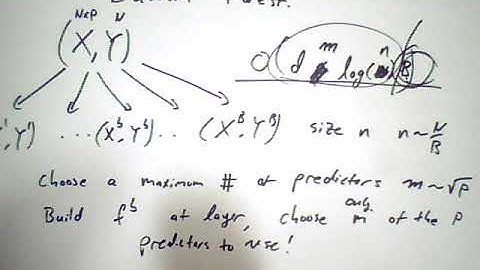 Forest.
N×P N
(X, Y)
O(d m log(n) B)
, Y¹) ... (Xᵇ, Yᵇ) ... (Xᴮ, Yᴮ) size n n ~ N/B
Choose a maximum # of predictors m ~ √p
Build fᵇ at layer, choose only m of the p
predictors to use!